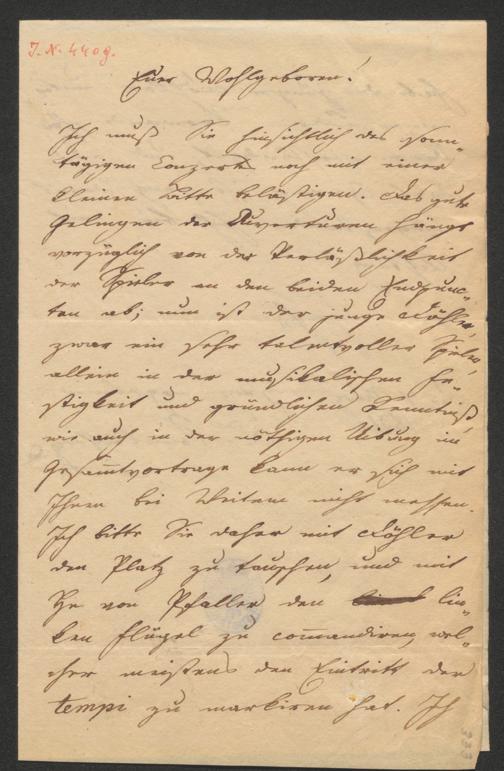 J. N. 4409.
Euer Wohlgeboren!
Ich muß Sie hinsichtlich des sonn-
tägigen Conzerts noch mit einer
kleinen Bitte belästigen. Das gute
Gelingen der Ouverturen hängt
vorzüglich von der Verläßlichkeit
der Spieler an den beiden Endpunc-
ten ab; nun ist der junge Köhler,
zwar ein sehr talentvoller Spieler,
allein in der musikalischen Fe-
stigkeit und gründlichen Kenntniß,
wie auch in der nöthigen Uibung im
Gesam̅tvortrage kann er sich mit
Ihnen bei Weitem nicht messen.
Ich bitte Sie daher mit Köhler
den Platz zu tauschen, und mit
H von Pfaller den lin-
ken Flügel zu com̅andiren, wel-
cher meistens den Eintritt der
tempi zu markiren hat. Ich
333